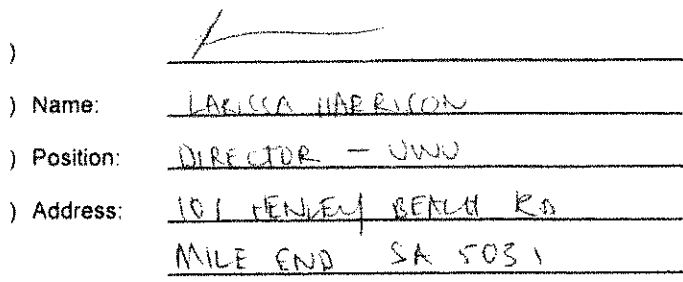 )
) Name: LARISSA HARRISON
) Position: DIRECTOR - UWU
) Address: 101 HENLEY BEACH RD
MILE END SA 5031